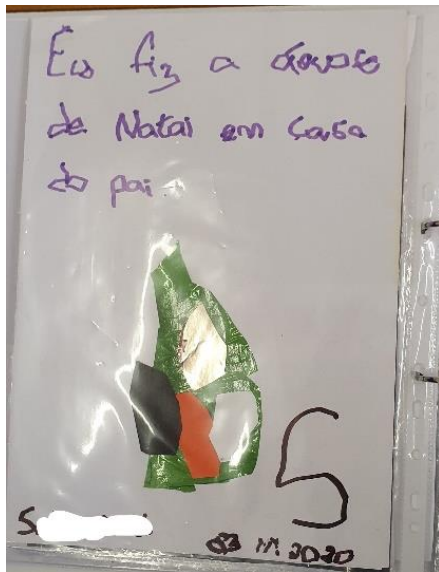 Eu fiz a árvore
de Natal em casa
do pai
5
S
2020